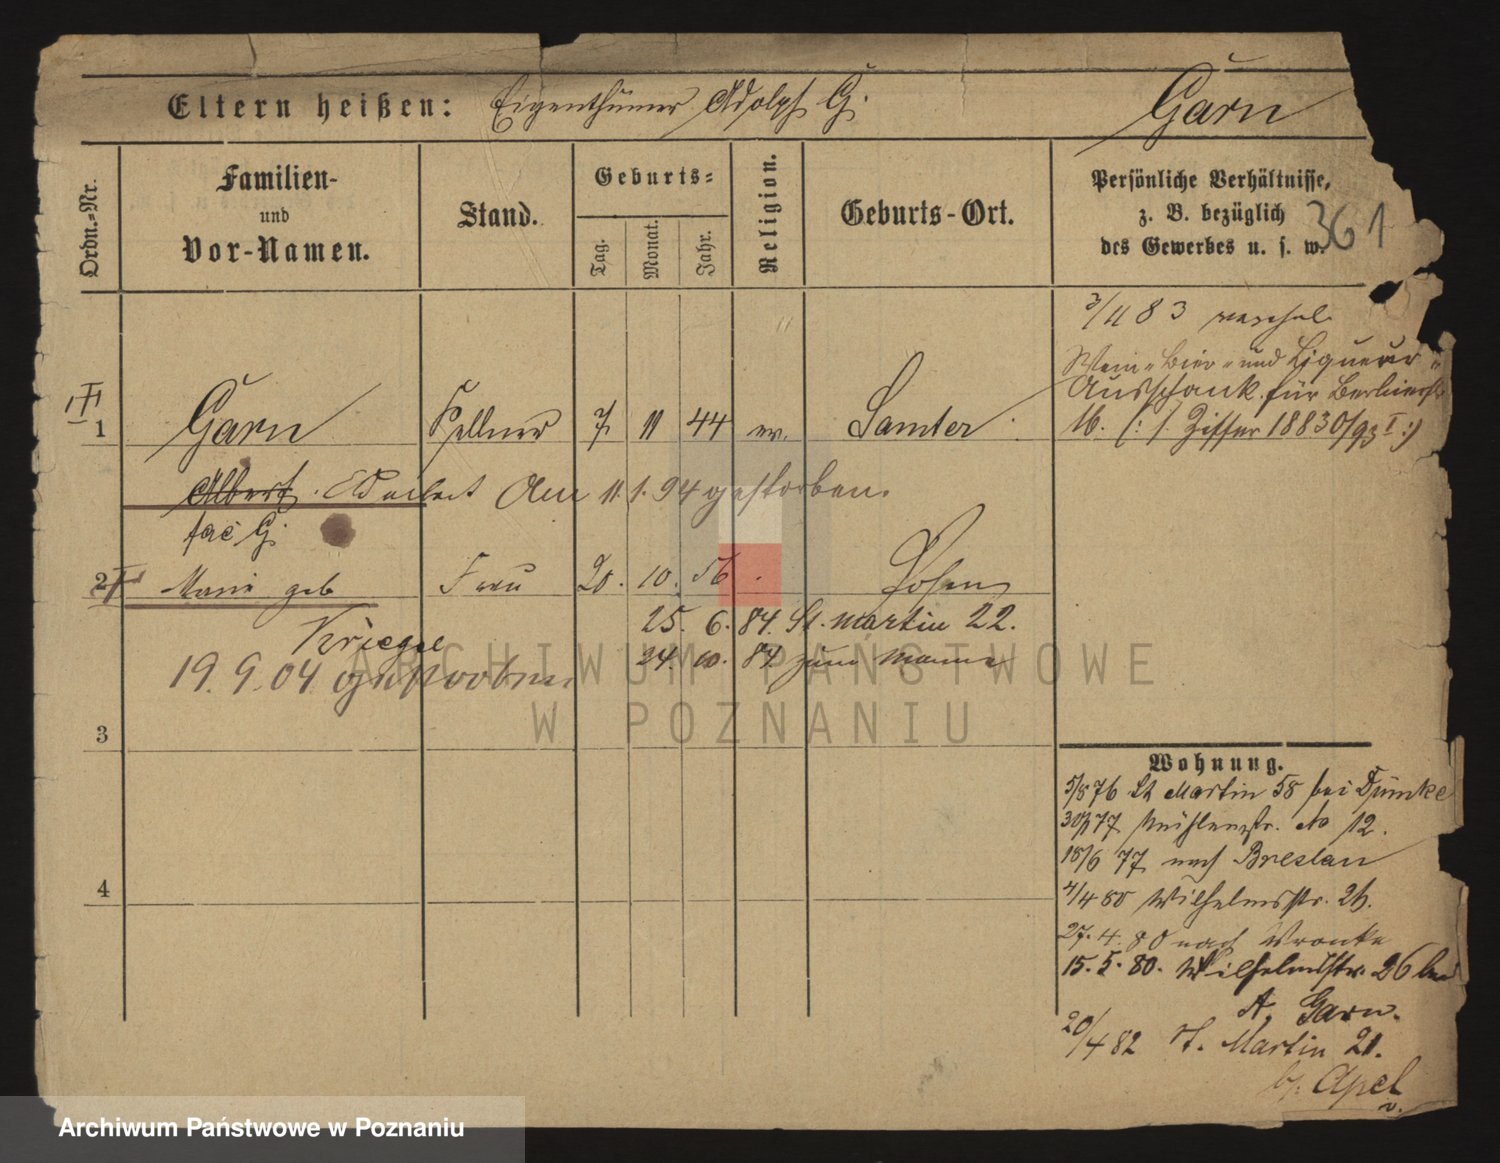 Eltern heißen: Eigenthümer Adolph G. Garn
Ordn.-Nr.
Familien-
und
Vor-Namen.
Stand.
Geburts-
Tag.
Monat.
Jahr.
Religion.
Geburts-Ort.
Persönliche Verhältnisse,
z. B. bezüglich
des Gewerbes u. s. w.
361
3/11 83
Wein- Bier- und Liqueur-
Ausschank für Berlinerstr
16. (: J. Ziffer 1883 0/93 I :)
1 Garn Kellner 7 11 44 ev. Samter
Albert Am 11. 1. 94 gestorben.
G.
2 Marie geb Frau 20. 10. 56 Posen
Kriegel
25. 6. 84. St. Martin 22.
24. 10. 84 zum Manne
19. 9. 04 gestorben
3
4
Wohnung.
5/8 76 St Martin 58 bei Dümke
77 Mühlenstr. No 12.
18/6 77 nach Breslau
4/4 80 Wilhelmsstr. 26.
27. 4. 80 nach Wronke
15. 5. 80. Wilhelmstr. 26 bei
A. Garn.
20/4 82 St. Martin 21.
b. Apel
ARCHIWUM PAŃSTWOWE
W POZNANIU
Archiwum Państwowe w Poznaniu